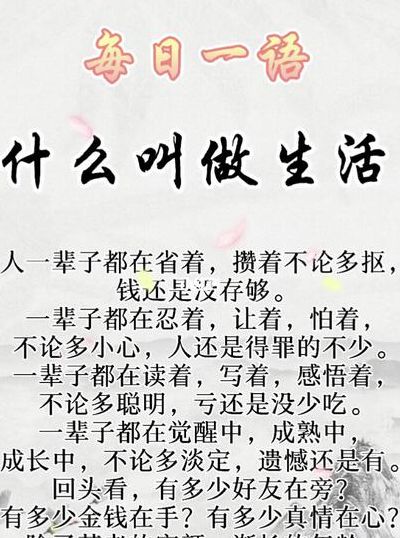 每日一语
什么叫做生活
人一辈子都在省着，攒着不论多抠，
钱还是没存够。
一辈子都在忍着，让着，怕着，
不论多小心，人还是得罪的不少。
一辈子都在读着，写着，感悟着，
不论多聪明，亏还是没少吃。
一辈子都在觉醒中，成熟中，
成长中，不论多淡定，遗憾还是有。
回头看，有多少好友在旁？
有多少金钱在手？有多少真情在心？